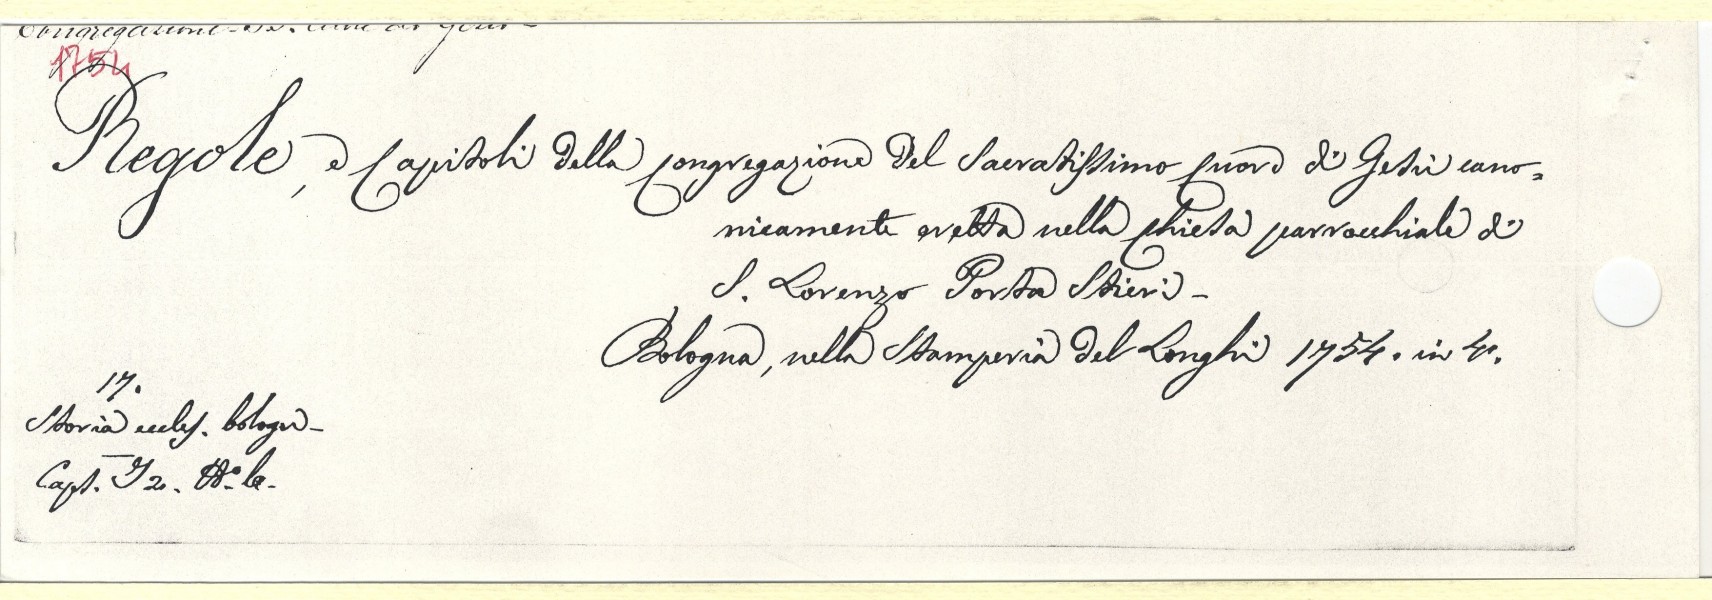 Congregazione - SS. Cuore di Gesù -
1754
Regole, e Capitoli della Congregazione del Sacratissimo Cuore di Gesù cano=
nicamente eretta nella Chiesa parrocchiale di
S. Lorenzo Porta Stieri -
Bologna, nella Stamperia del Longhi 1754. in 4°.
17.
Storia eccles. bologn -
Caps. I2. N.° 6.